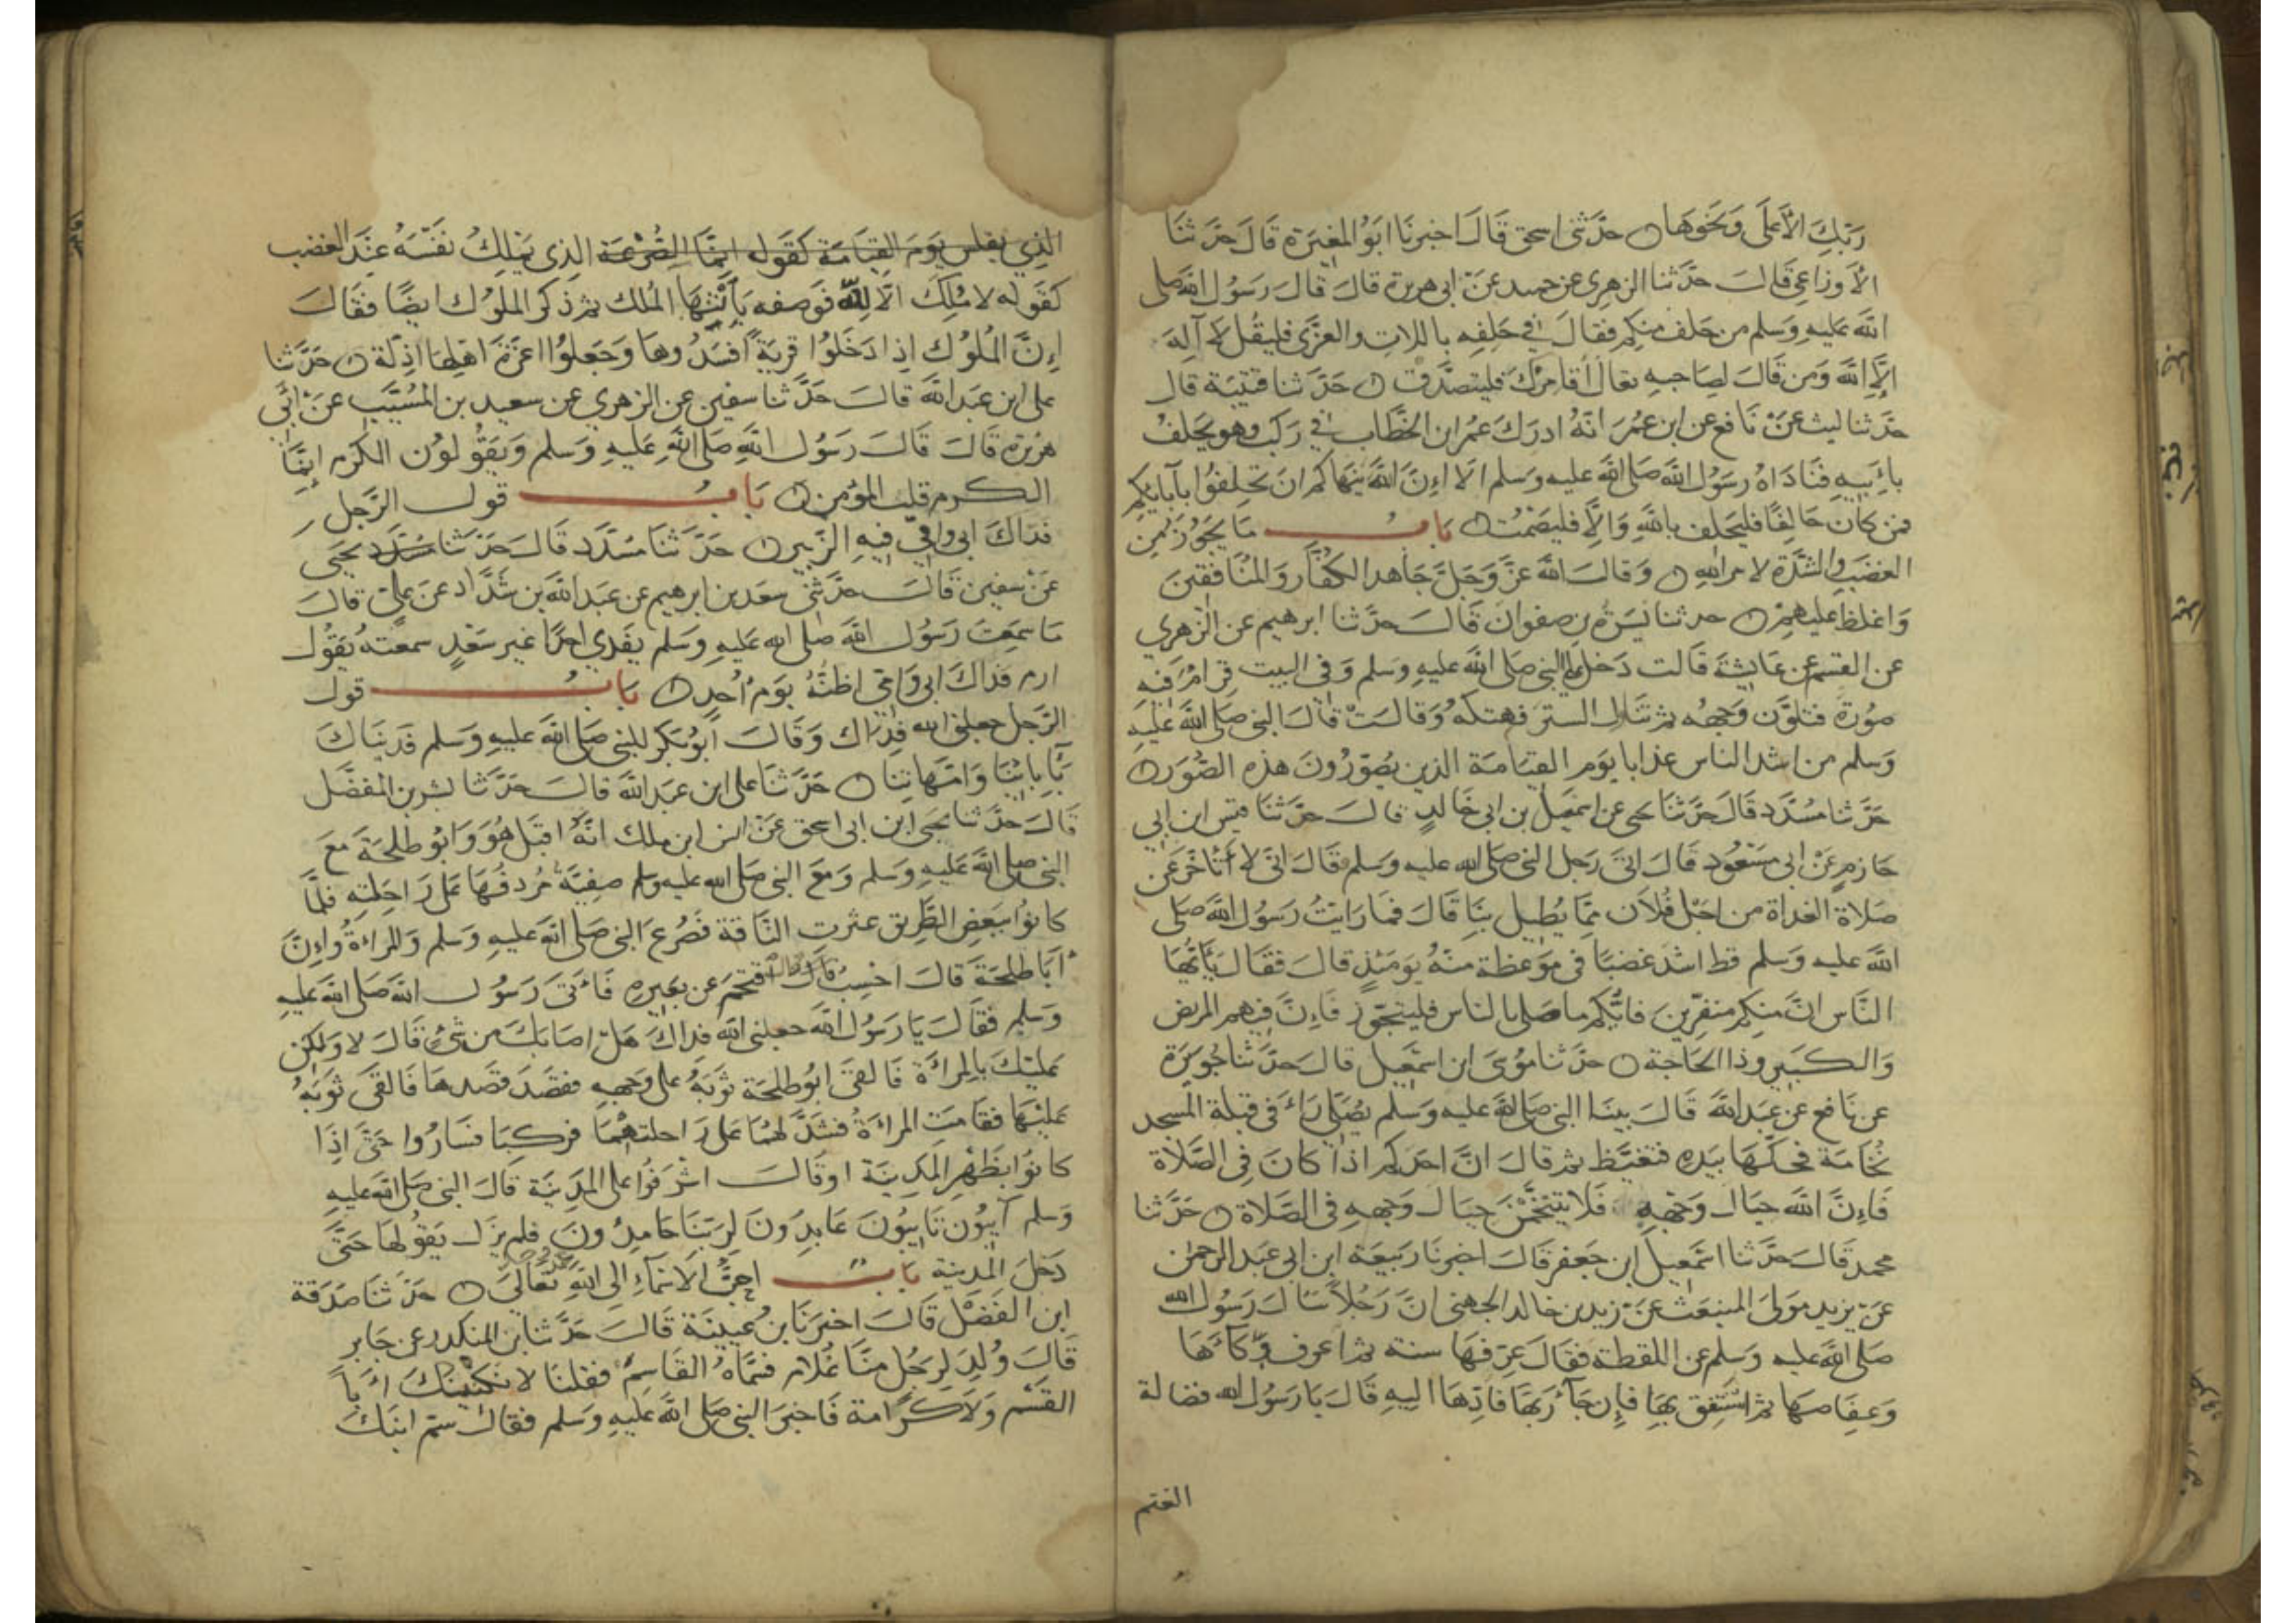 رَبِّكَ الأَعلَى وَنحَوهَا حدَّثنى اسحق قَالَ اخبرنَا ابَوُ المغِيَرة قَالَ حَدَّثنَا
الأَوزاعى قَالَ حدَّثنا الزهرِى عن حميد عَنْ ابى هريرة قالَ قَالَ رَسُول الله صلى
الله عَليهِ وَسَلم من حَلف منكم فقالَ في حَلِفِهِ باللات والعزَّى فليقُل لا آله
إلَّا الله وَمن قَالَ لصَاحبهِ تعالَ أقامرْكَ فليتصدَّق حَدَّثنا قتيَبة قال
حدَّثنا ليث عَنْ نَافع عن ابن عمُرَ انَّهُ ادرَكَ عمُر ابن الخطَّاب في رَكب وهو يحَلفُ
بأَبيهِ فنَادَاهُ رسَوُل الله صَلى الله عليه وَسَلم الَا إنَّ الله ينهَاكم ان تحَلِفوُا بآبائكم
فمن كان حَالِفًا فليحَلف بالله وَإلَّا فليَصْمُت بَابُ مَا يجَوُز مِن
الغضَب والشدَّة لامرالله وَقالَ الله عزَّ وَجَلَّ جَاهد الكفُّار وَالمنَافقين
وَاغلظ عليهم حدثنا يَسَرة بن صفوان قَالَ حَدَّثنا ابرهيم عن الزهري
عن القسم عن عَايشة قَالت دَخل عَلىَّ النبى صَلى الله عليهِ وسَلم وَفى البيت قِرامُ فيه
صوُرة فتلوَّن وَجههُ ثم تنَاول الستَر فهتكهُ وَقالتْ قالَ النبى صَلى الله عَليهِ
وَسَلم من اشد الناس عذابا يوَم القيَامَة الذين يصُوّرُونَ هذه الصُّوَر
حَدَّثنا مسُدَّد قَالَ حَدَّثنَا يحيى عن اسمعَيل بن ابى خَالدٍ قالَ حَدَّثنَا قيس ابن ابي
حَازم عَنْ ابى مسَعُود قَالَ اتىَ رَجل النبى صَلى الله عليه وَسَلم فقَالَ انّى لا أتأَخَّر عَن
صَلاة الغداة من اجَل فُلاَن ممَّا يُطيل بنِا قَالَ فمَا رَايتُ رَسُول الله صَلى
الله عليه وَسَلم قط اشد غضَبًا فى مَوعظة منهُ يوَمئذٍ قالَ فقَالَ يَاأيُّهَا
النَّاس انَّ منكم منفرّينَ فايُّكم ماصَلى بالناس فليتجَوَّز فَإنَّ فيهم المريض
وَالكبَير وذا الحَاجة حَدَّثنا موُسىَ ابن اسمَعيل قالَ حَدَّثنا جُويَرية
عن نَافع عن عَبدالله قَالَ بينَا النبى صَلى الله عليه وَسَلم يُصَلى رَاىَ فى قبلة المَسجد
نخُامَة فحَكَّهَا بيَدهِ فتغيَّظ ثم قالَ انَّ احَدكم اذا كانَ فى الصَّلاة
فَإنَّ الله حيَال وَجْههِ فَلا يتَنخَّمنَّ حِيَال وَجههِ فى الصَّلاة حَدَّثنا
محمد قَالَ حَدَّثنا اسَمعيل ابن جَعفر قَالَ اخبرنَا رَبيعَة ابن ابى عبَد الرحمن
عنَ يزيد مَولىَ المنبعَث عَنْ زيد بن خَالد الجهَنى انَّ رَجُلاً سَالَ رَسوُل الله
صَلى الله عَليه وَسَلم عن اللقطة فقَالَ عرّفهَا سنة ثم اعرف وِكاءَهَا
وَعِفَاصهَا ثم استَنفق بهَا فإن جَآءَ رَبّهَا فادّهَا اليهِ قَالَ يَا رَسُول الله فضالة
الغنم
الذِي يفلس يوَمَ القيامَة كقَوله انَّما الصُّرْعَة الذى يمَلِكُ نفسَهُ عِندَ الغضب
كقَوله لا مُلك الّا لله فوَصفه بانتهَا المُلك ثم ذكر الملوُك ايضًا فقَالَ
إنَّ المُلوُك إذا دَخَلوُا قريَةً افسَدُوهَا وَجَعلوُا اعزَّة اهلهَا اذلّة حَدَّثنا
على ابن عَبدالله قالَ حَدَّثنا سفين عن الزهري عن سعيد بن المُسَيَّب عَنْ ابَى
هرَيرة قَالَ قَالَ رَسُول الله صَلى الله عَليهِ وَسَلم وَيقَوُلوُن الكَرْم إنمَّا
الكرم قلب المؤمن بَابُ قول الرَّجل
فدَاكَ ابى وامي فيهِ الزّبير حَدَّثنَا مسُدَّد قَالَ حَدَّثنا مسُدَّد يحيَى
عَنْ سفين قَالَ حدَّثنى سعَد بن ابرهيم عن عبَدالله بن شدَّاد عَن عَلى قالَ
مَا سمعَتَ رَسُول الله صَلى الله عَليهِ وَسَلم يفَدي احدًا غير سَعْدٍ سمعَتهُ يقَوُل
ارم فدَاكَ ابى وَامى اظنُّهُ يوَمَ احُدٍ بَابُ قول
الرَّجل جعلنى الله فدَاك وَقَالَ ابَوُ بكر للنبى صَلى الله عَليهِ وَسَلم فدَينَاكَ
بآبائنَا وَامّهَاتنَا حَدَّثنَا على ابن عبَدالله قَالَ حَدَّثنا بشر بن المفضَّل
قَالَ حَدَّثنا يحَيى ابن ابى اسحق عَنْ انس ابن ملك انَّهُ اقبَل هُوَ وَابَوُ طلحَة مَعَ
النبى صلى الله عَليهِ وَسَلم وَمَعَ النبى صَلى الله عَليه وسلم صفيَّة مُردفُهَا عَلى رَاحِلتهِ فلمَّا
كانوُا ببَعض الطَّريق عثرت النَّاقة فَصُرعَ النبى صَلى الله عَليهِ وَسَلم وَالمراءَةُ وَإنَّ
أبَا طلحَةَ قالَ احْسِبُ قالَ اقتحَمَ عن بعَيرهِ فَأتىَ رَسُول الله صَلى الله عَليهِ
وَسَلم فقَالَ يَا رَسُول الله جعلنى الله فدَاكَ هَل اصَابَكَ من شئٍ قَالَ لا وَلكن
عَليْكَ بالمرأَة فَالقىَ ابُو طلحَة ثوبَهُ على وَجههِ فقصَدَ قصَدهَا فَالقىَ ثوَبهُ
عَليْهَا فقامَتِ المراَةُ فشَدَّ لهمُا عَلى رَاحلتهمَا فركبَا فسَارُوا حَتَّى اذِا
كانوُا بظَهْر المَدينَة اوقَالَ اشرَفوُا على المَدينَة قَالَ النبى صَلى الله عَليهِ
وَسَلم آيبُون تَايبُونَ عَابدِوُنَ لرَبّنَا حَامدِوُنَ فلم يزَل يقَوُلهَا حَتَّى
دَخَل المَدينة بَابُ احَبّ الاَسْماَءِ إلى الله عز وجل تعَالىَ حَدَّثنَا صَدَقة
ابن الفَضْل قَالَ اخبرَنَا بنُ عُيينَة قَالَ حَدَّثنا بن المنكدر عن جَابر
قَالَ وُلدَ لرَجُل منَّا غُلام فسَمَّاهُ القَاسِمَ فقلنَا لا نكَنّيكَ ابَا
القسَم وَلاَ كرَامة فَاخبرَ النبى صَلى الله عَليهِ وَسَلم فقالَ سَمّ ابنَكَ